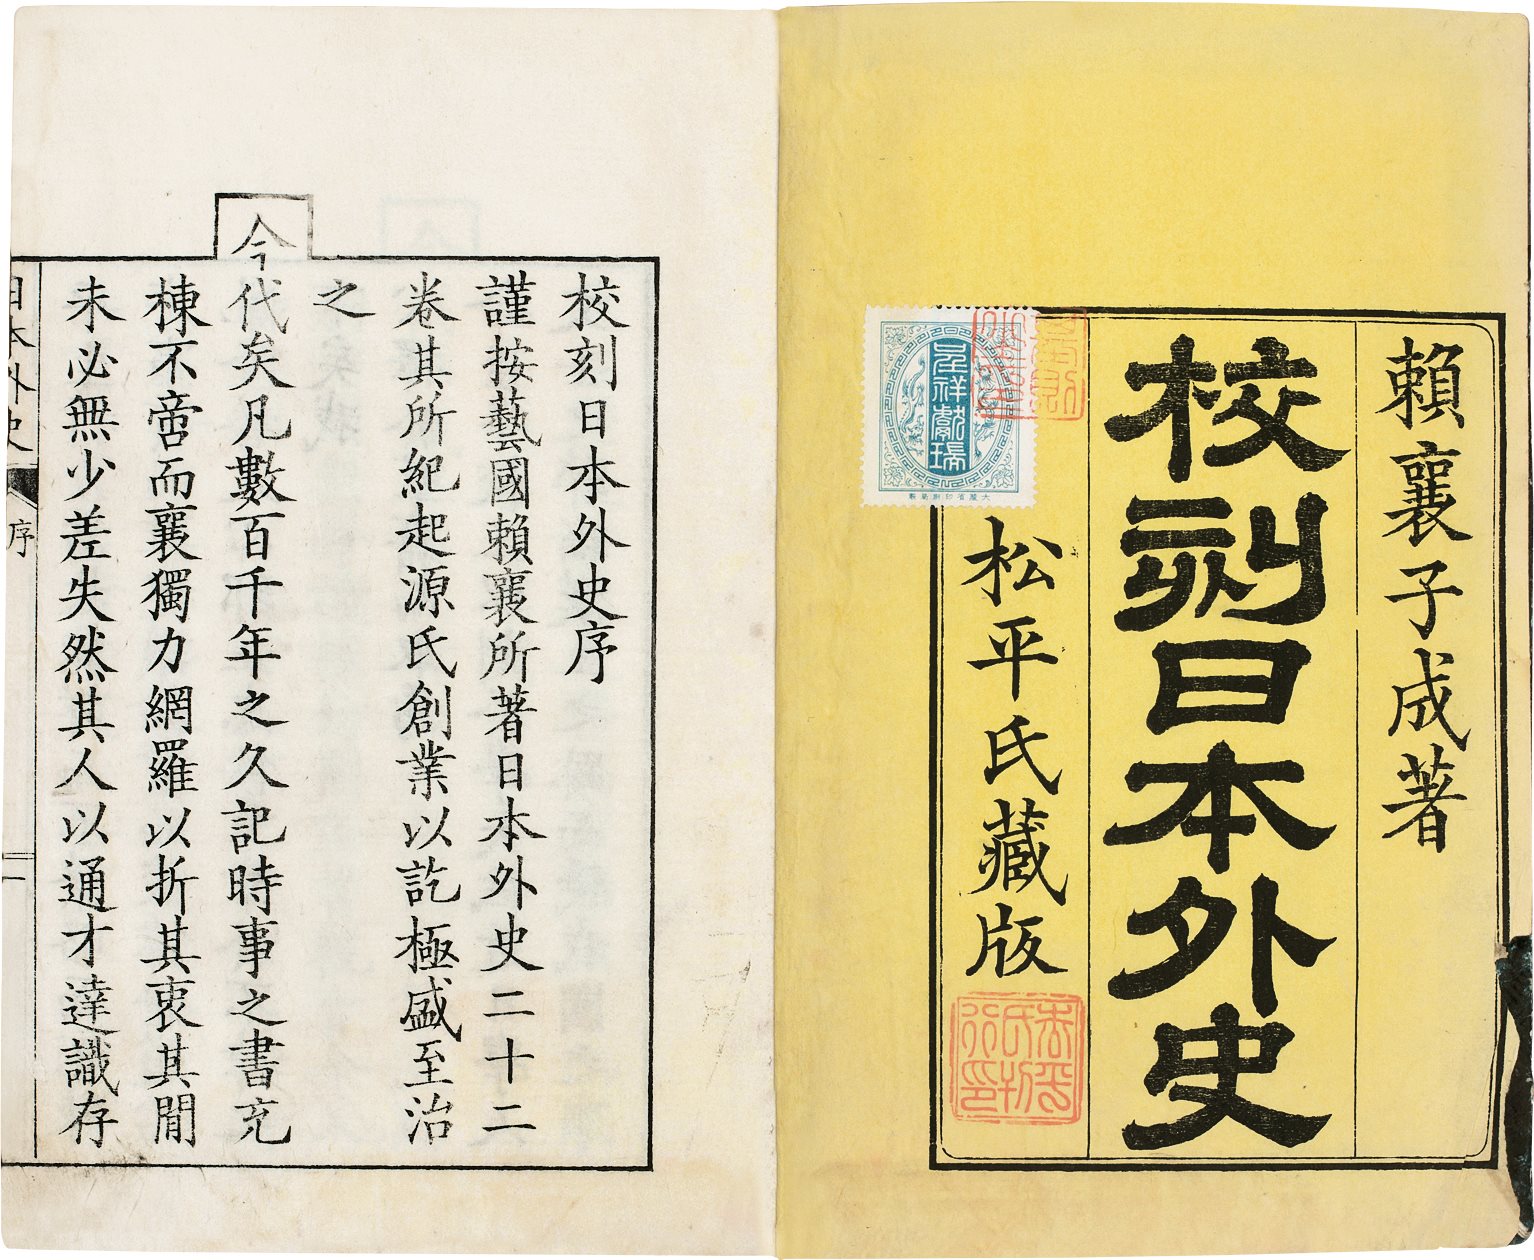 賴襄子成著
校刻日本外史
松平氏藏版
大藏省印刷局製
校刻日本外史序
謹按藝國賴襄所著日本外史二十二
卷其所紀起源氏創業以訖極盛至治
之
今代矣凡數百千年之久記時事之書充
棟不啻而襄獨力網羅以折其衷其間
未必無少差失然其人以通才達識存
日本外史
序
一